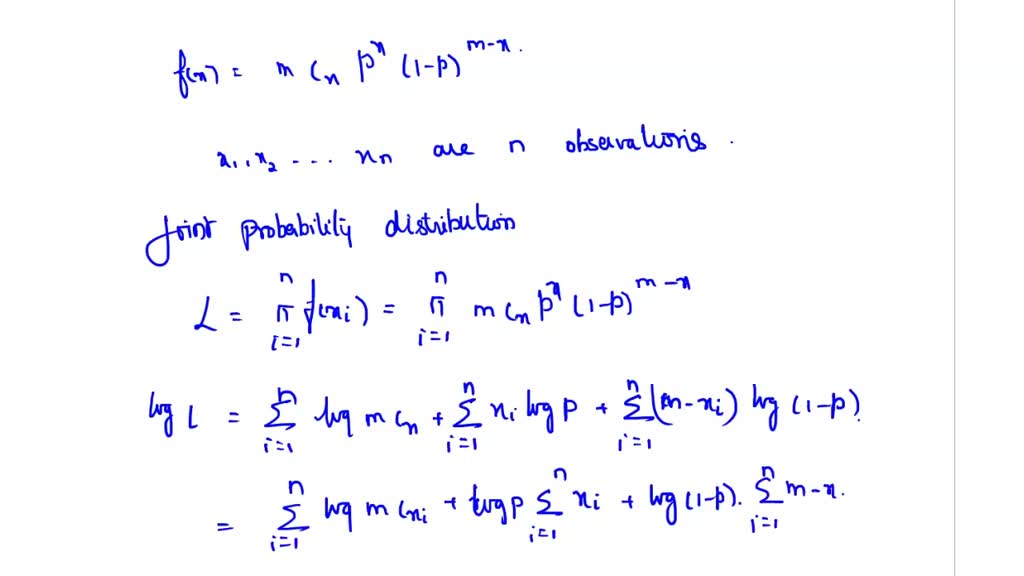 f(x) = m Cx p^x (1-p)^{m-x}.
x1, x2 ... xn are n observations.
Joint probability distribution
L = π_{i=1}^{n} f(xi) = π_{i=1}^{n} m Cx p^x (1-p)^{m-x}
log L = Σ_{i=1}^{n} log m Cx + Σ_{i=1}^{n} xi log p + Σ_{i=1}^{n} (m-xi) log (1-p)
= Σ_{i=1}^{n} log m Cxi + log p Σ_{i=1}^{n} xi + log (1-p). Σ_{i=1}^{n} m-x.